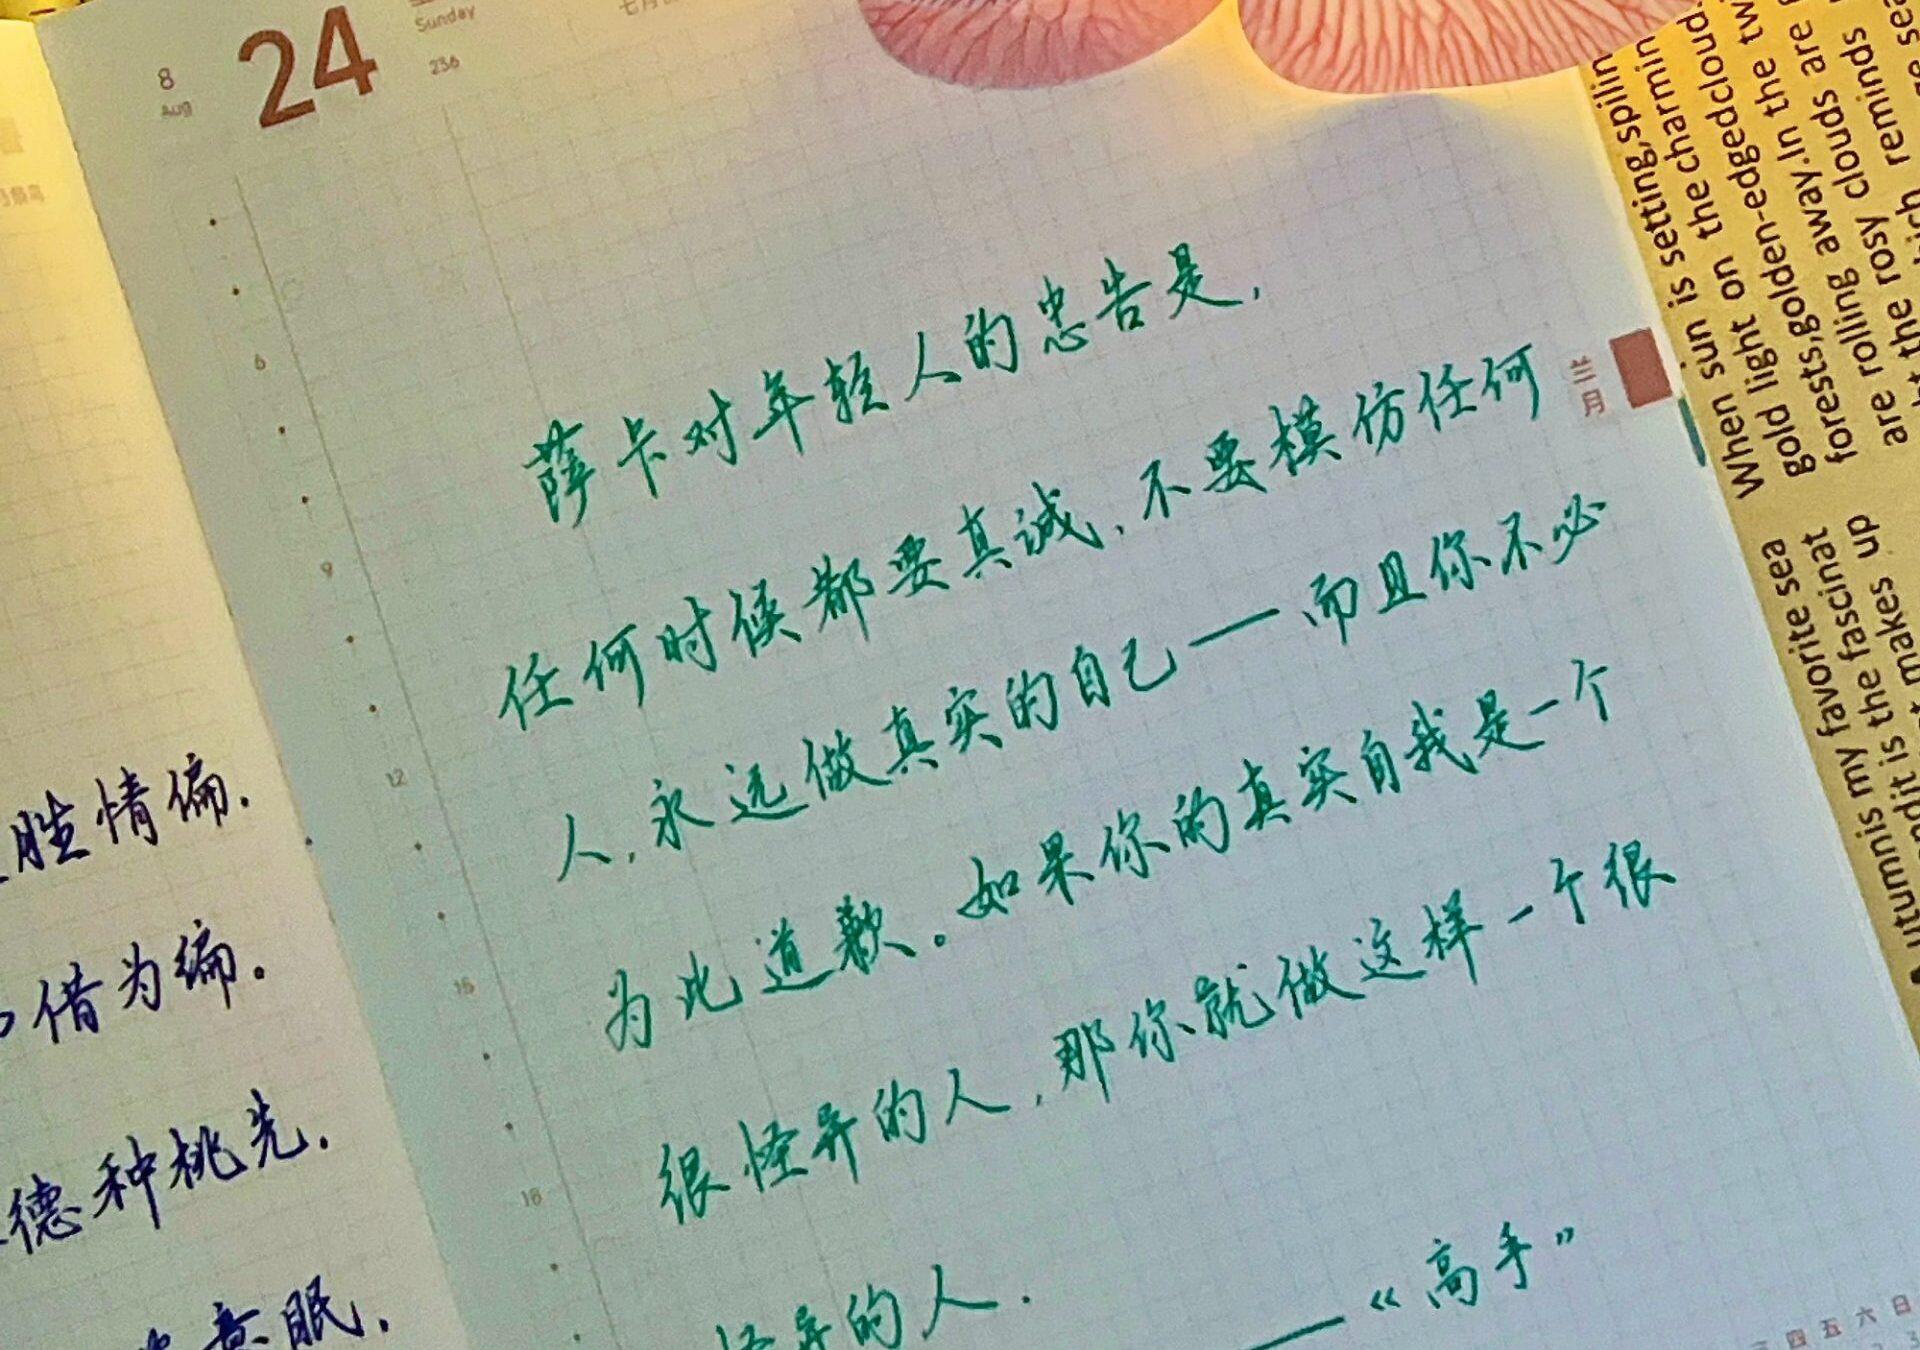 8
Aug
24
Sunday
236
萨卡对年轻人的忠告是,
任何时候都要真诚,不要模仿任何
人,永远做真实的自己——而且你不必
为此道歉。如果你的真实自我是一个
很怪异的人,那你就做这样一个很
怪异的人.
——“高手”
6
9
12
15
18
兰月
胜情偏.
借为编。
德种桃先.
意眠.
When sun is setting,spilin
gold light on the charmin
forests,golden-edgedcloud.
are rolling away.In the tw
the rosy clouds are
reminds
my favorite sea
is the fascinat
makes up
四 五 六 日